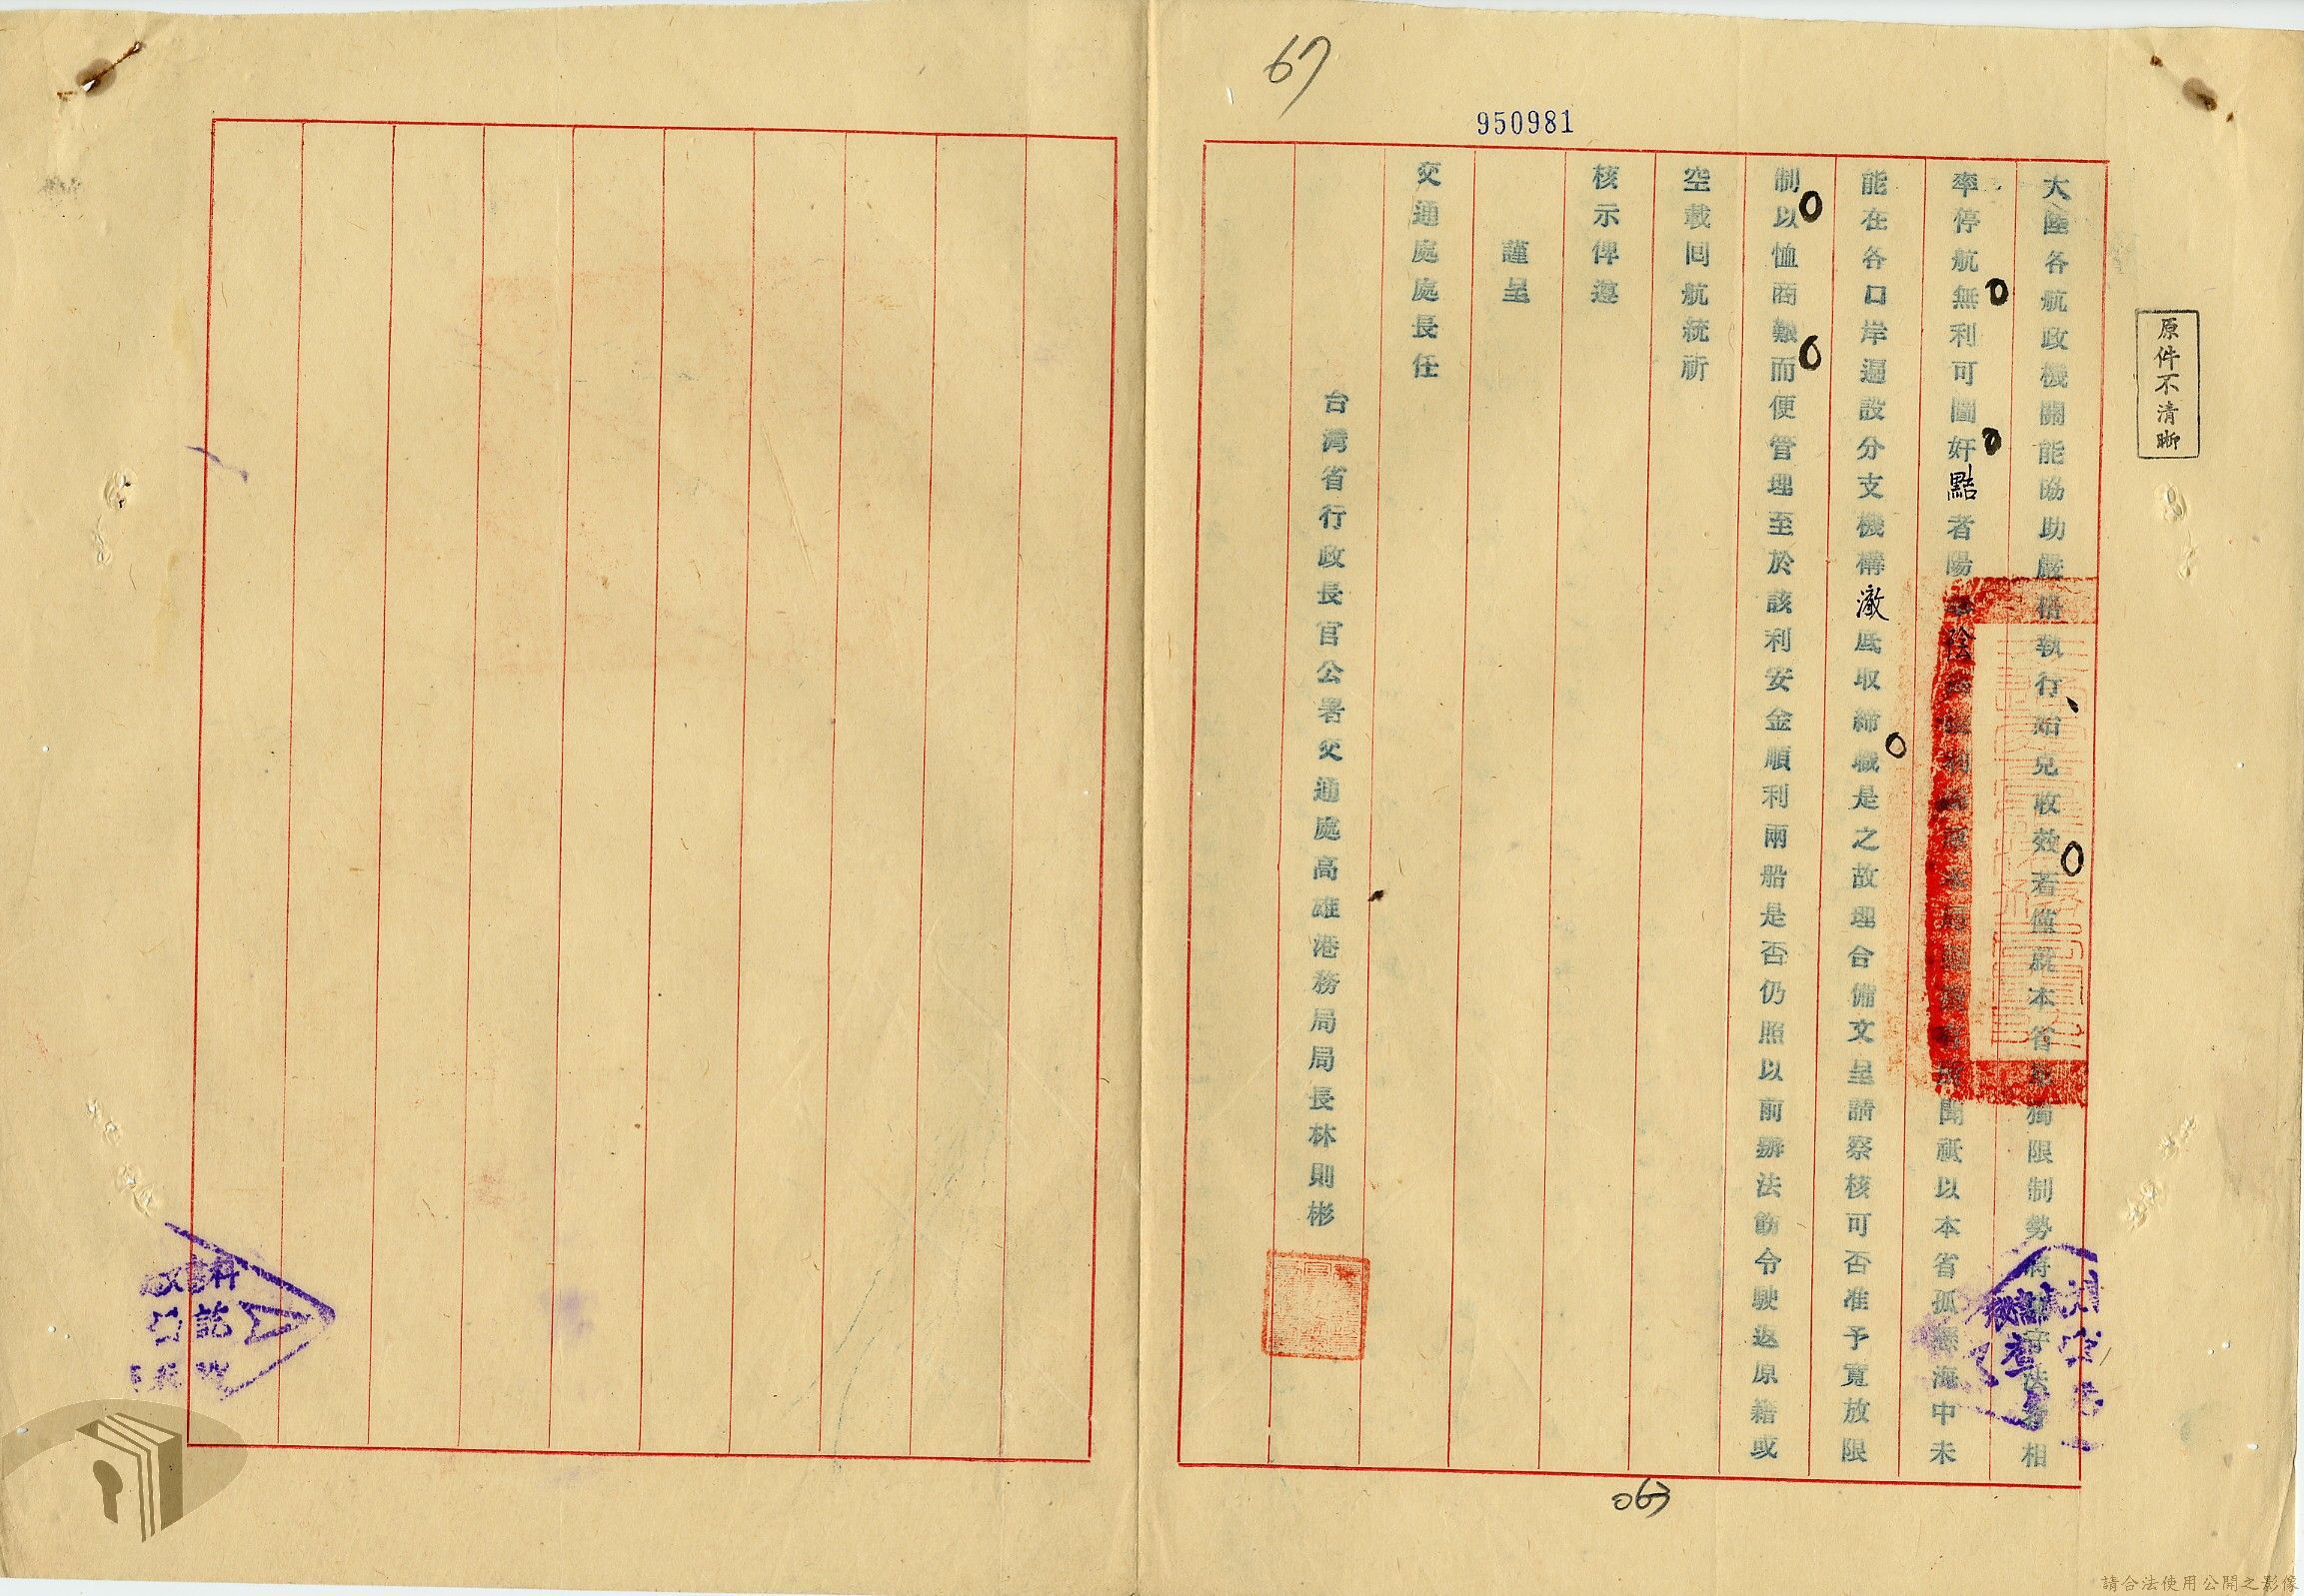 67
950981
原件不清晰
大陸各航政機關能協助嚴格執行始克收效若僅就本省單獨限制勢將守法者相
率停航無利可圖奸黠者陽 陰 聞祇以本省孤懸海中未
能在各口岸遍設分支機構澈底取締職是之故理合備文呈請察核可否准予寬放限
制以恤商艱而便管理至於該利安金順利兩船是否仍照以前辦法飭令駛返原籍或
空載回航統祈
核示俾遵
謹呈
交通處處長任
台灣省行政長官公署交通處高雄港務局局長林則彬
063
請合法使用公開之影像